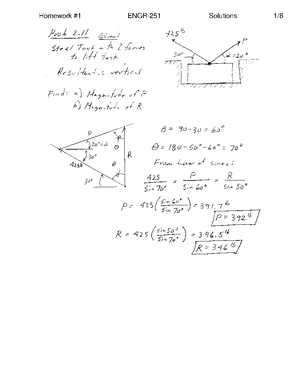 Homework #1 ENGR-251 Solutions 1/8
Prob 2.11 Given:
Steel Tank with 2 forces
to lift Tank
Resultant is vertical
Find: a) Magnitude of P
b) Magnitude of R
425 lb
P
30°
α=20°
P
20°=α
30°
425 lb
θ
R
β
30°
β = 90-30 = 60°
θ = 180-50°-60° = 70°
From Law of sines:
425/sin 70° = P/sin 60° = R/sin 50°
P = 425 (sin 60°/sin 70°) = 391.7 lb
P = 392 lb
R = 425 (sin 50°/sin 70°) = 346.5 lb
R = 346 lb